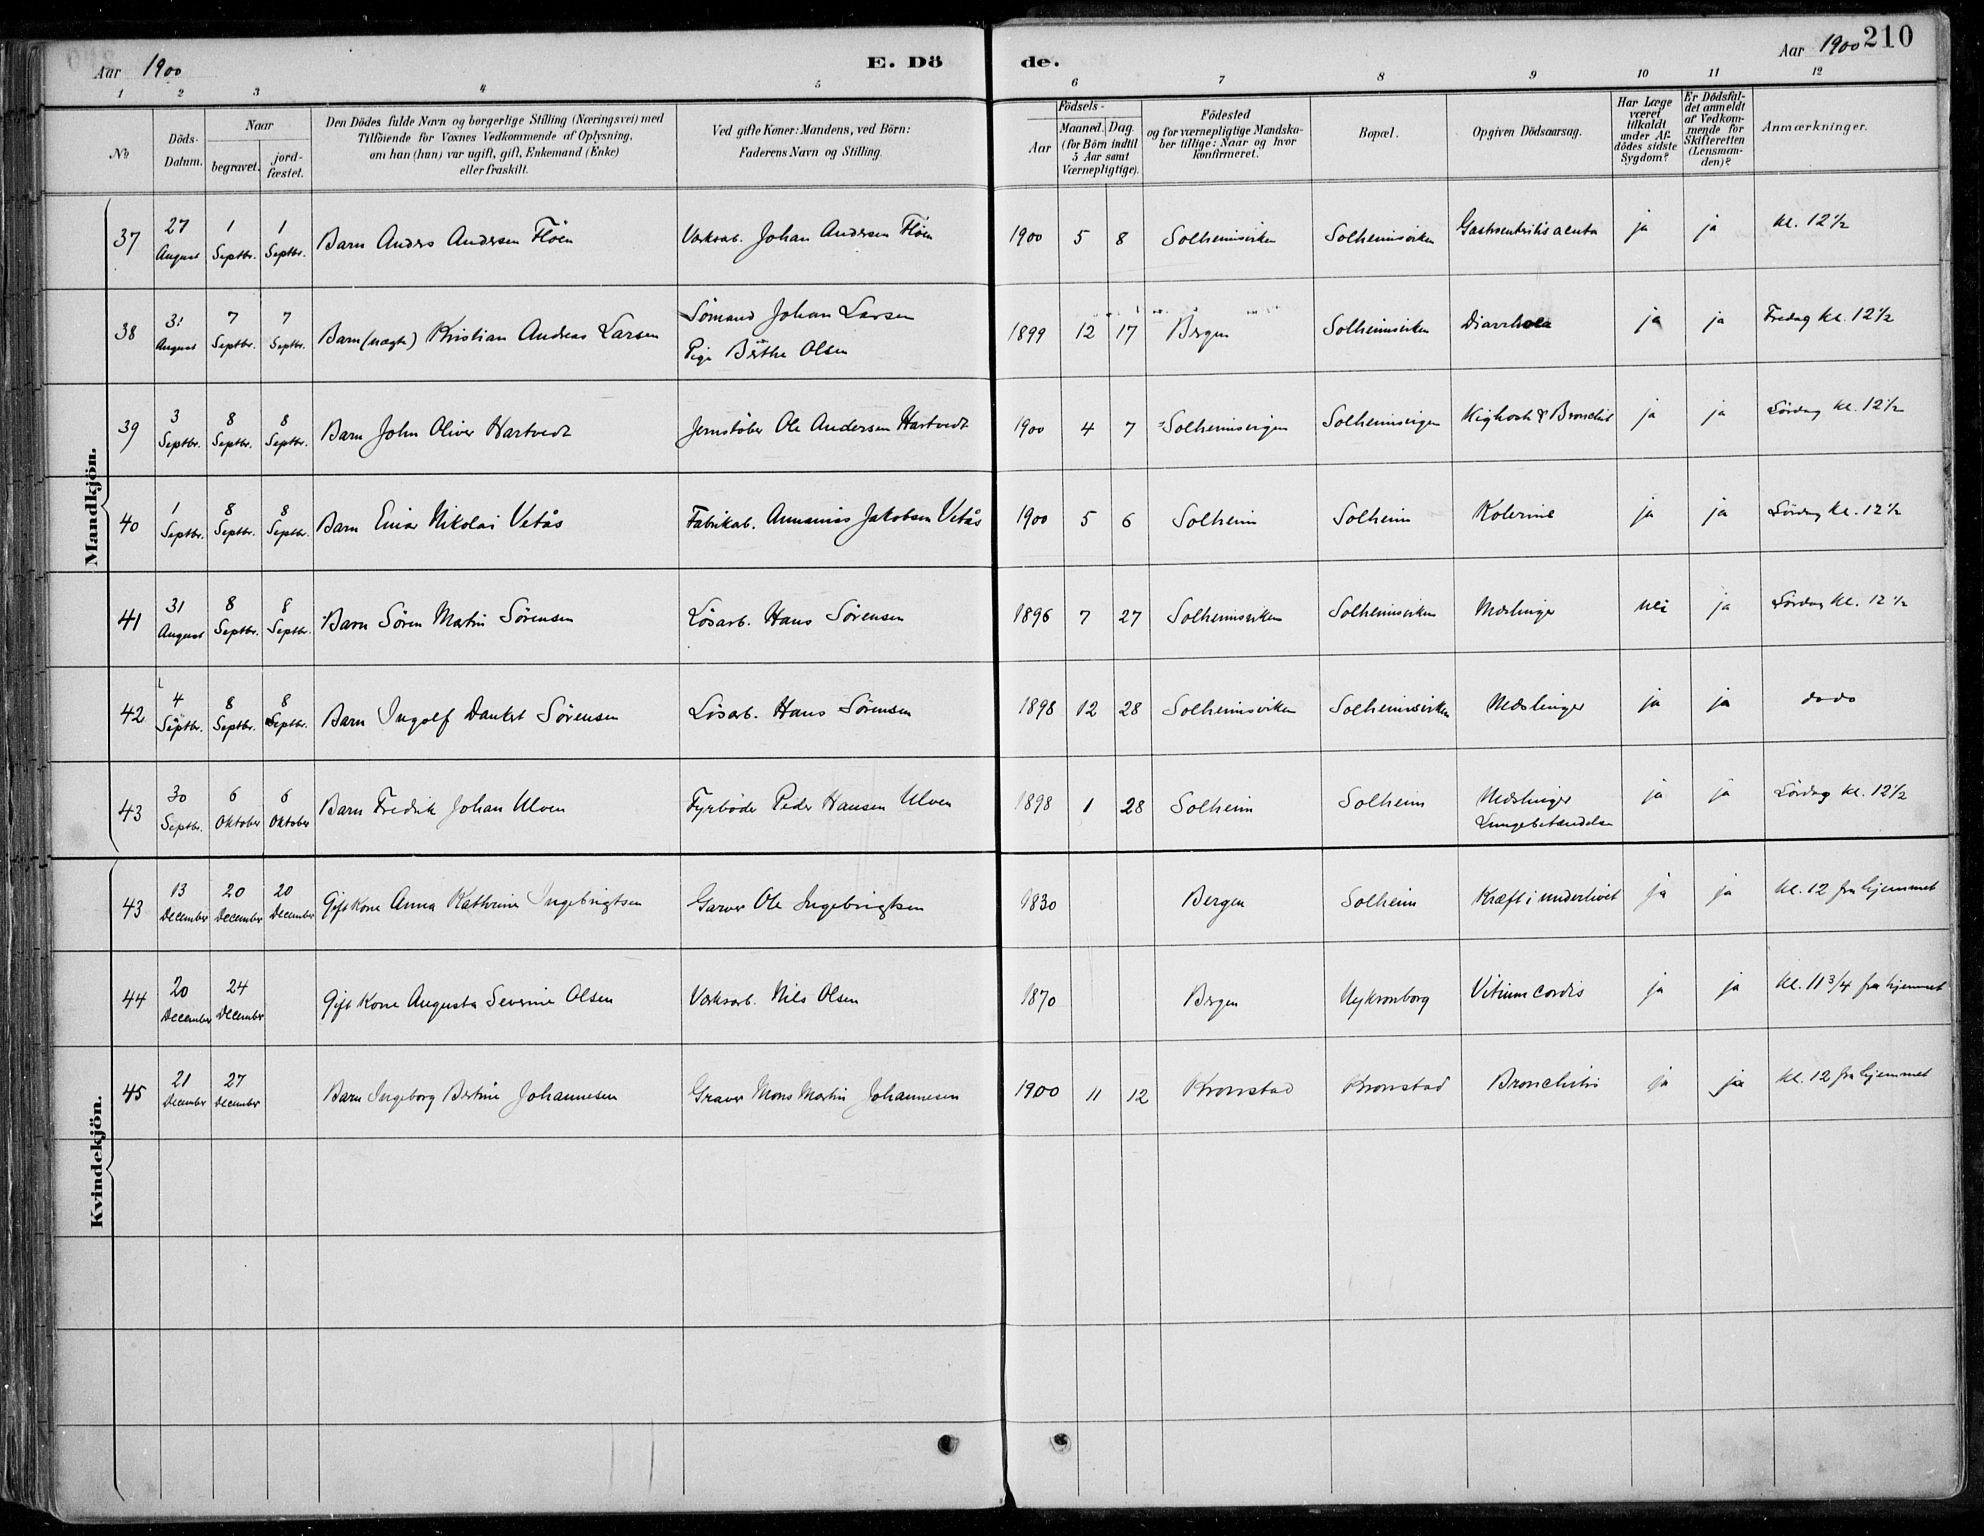 Aar 1900
E. Dö
de.
Aar 1900
210
1 2 3 4 5 6 7 8 9 10 11 12
No
Döds-Datum.
Naar
begravet.
jord-fæstet.
Den Dödes fulde Navn og borgerlige Stilling (Næringsvei) med
Tilföiende for Voxnes Vedkommende af Oplysning,
om han (hun) var ugift, gift, Enkemand (Enke)
eller fraskilt.
Ved gifte Koner: Mandens, ved Börn:
Faderens Navn og Stilling.
Födsels-
Aar
Maaned. Dag.
(for Börn indtil
5 Aar samt
Værnepligtige).
Födested
og for værnepligtige Mandska-
ber tillige: Naar og hvor
konfirmeret.
Bopæl.
Opgiven Dödsaarsag.
Har Læge
været
tilkaldt
under Af-
dödes sidste
Sygdom?
Er Dödsfal-
det anmeldt
af Vedkom-
mende for
Skifteretten
(Lensman-
den)?
Anmærkninger.
Mandkjön.
37 27 August 1 Septbr. 1 Septbr. Barn Anders Andersen Fløen Værksarb. Johan Andersen Fløen 1900 5 8 Solheimsviken Solheimsviken Gastroentritis acuta ja ja kl. 12 1/2
38 31 August 7 Septbr. 7 Septbr. Barn (uægte) Kristian Andreas Larsen Sømand Johan Larsen
Pige Berthe Olsen 1899 12 17 Bergen Solheimsviken Diarrhoea ja ja Fredag kl. 12 1/2
39 3 Septbr. 8 Septbr. 8 Septbr. Barn John Oliver Hartvedt Jernstøber Ole Andersen Hartvedt 1900 4 7 Solheimsvigen Solheimsvigen Kighoste & Bronchit ja ja Lördag kl. 12 1/2
40 1 Septbr. 8 Septbr. 8 Septbr. Barn Einar Nikolai Vetås Fabrikab. Annanias Jakobsen Vetås 1900 5 6 Solheim Solheim Kolerine ja ja Lördag kl. 12 1/2
41 31 August 8 Septbr. 8 Septbr. Barn Sören Martin Sörensen Lösarb. Hans Sörensen 1896 7 27 Solheimsviken Solheimsviken Mæslinger nei ja Lördag kl. 12 1/2
42 4 Septbr. 8 Septbr. 8 Septbr. Barn Ingolf Dankert Sörensen Lösarb. Hans Sörensen 1898 12 28 Solheimsviken Solheimsviken Mæslinger ja ja do do
43 30 Septbr. 6 Oktober 6 Oktober Barn Fredrik Johan Ulven Fyrbøder Peder Hansen Ulven 1898 1 28 Solheim Solheim Mæslinger
Lungebetændelse ja ja Lördag kl. 12 1/2
Kvindekjön.
43 13 December 20 December 20 December Gift Kone Anna Kathrine Ingebrigtsen Garver Ole Ingebrigtsen 1830 Bergen Solheim Kræft i underlivet ja ja kl. 12 fra hjemmet
44 20 December 24 December Gift Kone Augusta Severine Olsen Værksarb. Nils Olsen 1870 Bergen Nykronborg Vitium cordis ja ja kl. 11 3/4 fra hjemmet
45 21 December 27 December Barn Ingeborg Bertine Johannesen Graver Mons Martin Johannesen 1900 11 12 Kronstad Kronstad Bronchitis ja ja kl. 12 fra hjemmet